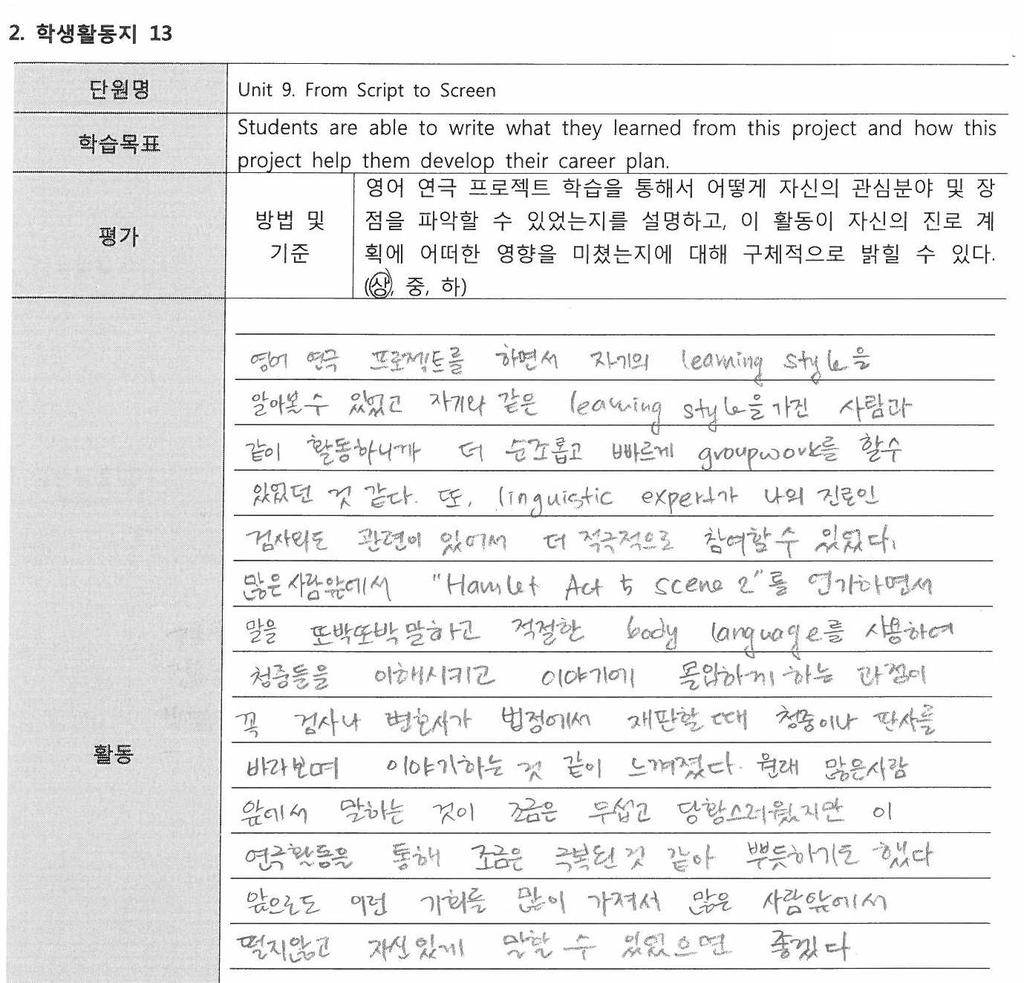 2. 학생활동지 13
단원명
Unit 9. From Script to Screen
학습목표
Students are able to write what they learned from this project and how this
project help them develop their career plan.
평가
방법 및
기준
영어 연극 프로젝트 학습을 통해서 어떻게 자신의 관심분야 및 장
점을 파악할 수 있었는지를 설명하고, 이 활동이 자신의 진로 계
획에 어떠한 영향을 미쳤는지에 대해 구체적으로 밝힐 수 있다.
(상, 중, 하)
활동
영어 연극 프로젝트를 하면서 자기의 learning style을
알아볼 수 있었고 자기와 같은 learning style을 가진 사람과
같이 활동하니까 더 순조롭고 빠르게 groupwork를 할수
있었던 것 같다. 또, linguistic expert가 나의 진로인
검사와도 관련이 있어서 더 적극적으로 참여할 수 있었다.
많은 사람 앞에서 "Hamlet Act 5 scene 2"를 연기하면서
말을 또박또박 말하고 적절한 body language를 사용하여
청중들을 이해시키고 이야기에 몰입하게 하는 과정이
꼭 검사나 변호사가 법정에서 재판할 때 청중이나 판사를
바라보며 이야기하는 것 같이 느껴졌다. 원래 많은사람
앞에서 말하는 것이 조금은 무섭고 당황스러웠지만 이
연극활동을 통해 조금은 극복된 것 같아 뿌듯하기도 했다
앞으로도 이런 기회를 많이 가져서 많은 사람앞에서
떨지않고 자신있게 말할 수 있었으면 좋겠다